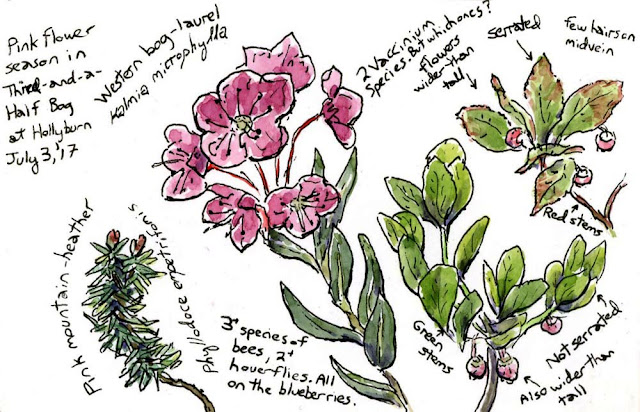 Pink flower
season in
Third-and-a-
Half Bog
at Hollyburn
July 3, '17
Western bog-laurel
Kalmia microphylla
2 Vaccinium
Species. But which ones?
Flowers
wider than
tall
serrated
Few hairs on
midvein
Red stems
Pink mountain-heather
Phyllodoce empetriformis
3+ species of
bees, 2+
hoverflies. All
on the blueberries.
Green
stems
Not serrated
Also wider than
tall